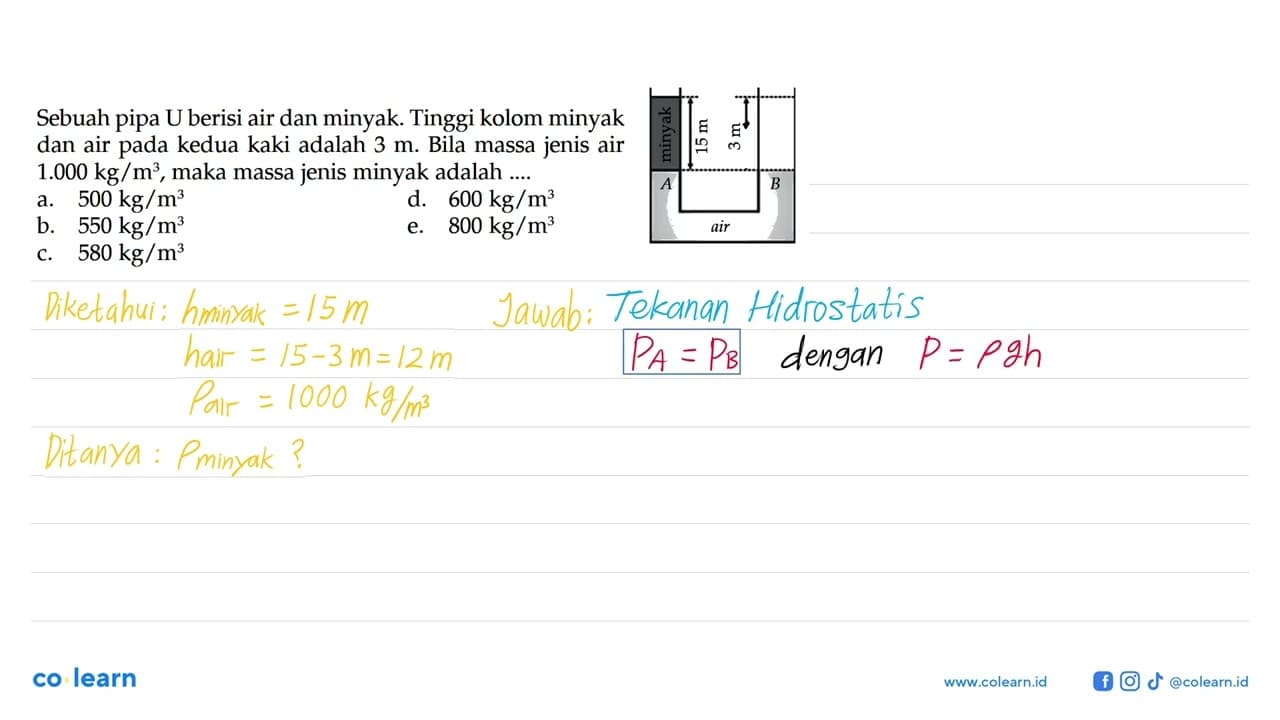 Sebuah pipa U berisi air dan minyak. Tinggi kolom minyak
dan air pada kedua kaki adalah 3 m. Bila massa jenis air
1.000 kg/m³, maka massa jenis minyak adalah ....
a. 500 kg/m³ d. 600 kg/m³
b. 550 kg/m³ e. 800 kg/m³
c. 580 kg/m³
minyak
15 m
3 m
A
B
air
Diketahui: hminyak = 15 m
hair = 15 - 3 m = 12 m
ρair = 1000 kg/m³
Ditanya: ρminyak ?
Jawab: Tekanan Hidrostatis
PA = PB dengan P = ρgh
co learn
www.colearn.id
@colearn.id